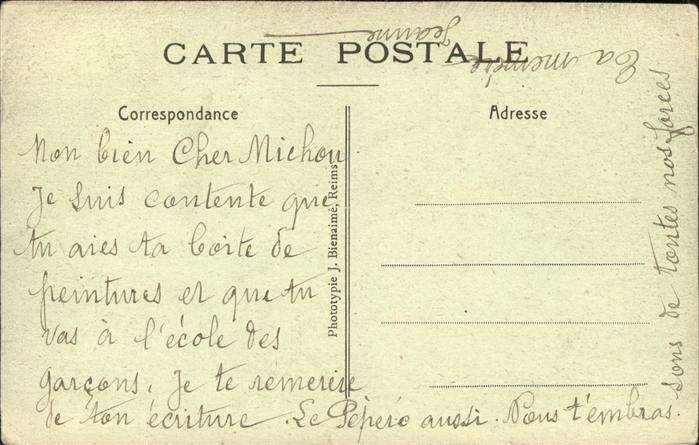 CARTE POSTALE
Correspondance
Adresse
Mon bien Cher Michou
Je suis contente que
tu aies ta boite de
peintures et que tu
vas à l'école des
garçons. Je te remercie
de ton écriture. Le Pépéro aussi. Nous t'embras.
sons de toutes nos forces
Ta mémère
Jeanne
Phototypie J. Bienaimé, Reims